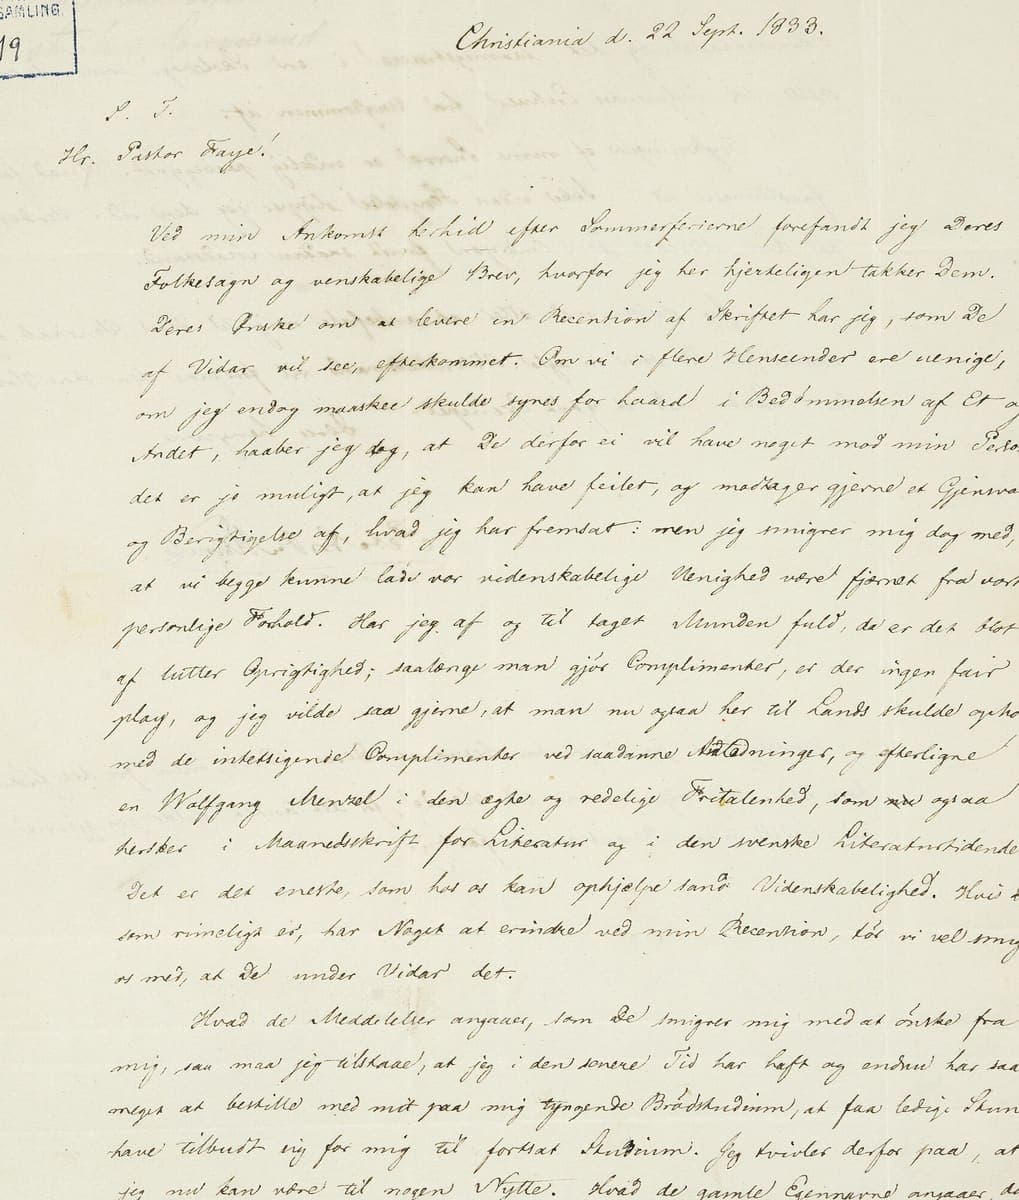 SAMLING
19
Christiania d. 22 Sept. 1833.
S. T.
Hr. Pastor Faye!
Ved min Ankomst herhid efter Sommerferierne forefandt jeg Deres
Folkesagn og venskabelige Brev, hvorfor jeg her hjerteligen takker Dem.
Deres Ønske om at levere en Recention af Skriftet har jeg, som De
af Vidar vil see, efterkommet. Om vi i flere Henseender ere uenige,
om jeg endog maaskee skulde synes for haard i Bedømmelsen af Et og
Andet, haaber jeg dog, at De derfor ei vil have noget mod min Perso
det er jo muligt, at jeg kan have feilet, og modtager gjerne et Gjensva
og Berigtigelse af, hvad jeg har fremsat: men jeg smigrer mig dog med,
at vi begge kunne lade vor videnskabelige Uenighed være fjærnet fra vort
personlige Forhold. Har jeg af og til taget Munden fuld, da er det blot
af lutter Oprigtighed; saalænge man gjør Complimenter, er der ingen fair
play, og jeg vilde saa gjerne, at man nu ogsaa her til Lands skulde opho
med de intetsigende Complimenter ved saadanne Anledninger, og efterligne
en Wolfgang Menzel i den ægte og redelige Fritalenhed, som nu ogsaa
hersker i Maanedsskrift for Literatur og i den svenske Literaturtidende
Det er det eneste, som hos os kan ophjelpe sand Videnskabelighed. Hvis
som rimeligt er, har Noget at erindre ved min Recention, tør vi vel smig
os med, at De under Vidar det.
Hvad de Meddelelser angaaer, som De smigrer mig med at ønske fra
mig, saa maa jeg tilstaae, at jeg i den senere Tid har haft og endnu har saa
meget at bestille med mit paa mig tyngende Brødstudium, at faa ledige Stun
have tilbudt sig for mig til fortsat Studium. Jeg tvivler derfor paa, at
jeg nu kan være til nogen Nytte. Hvad de gamle Egennavne angaaer, de